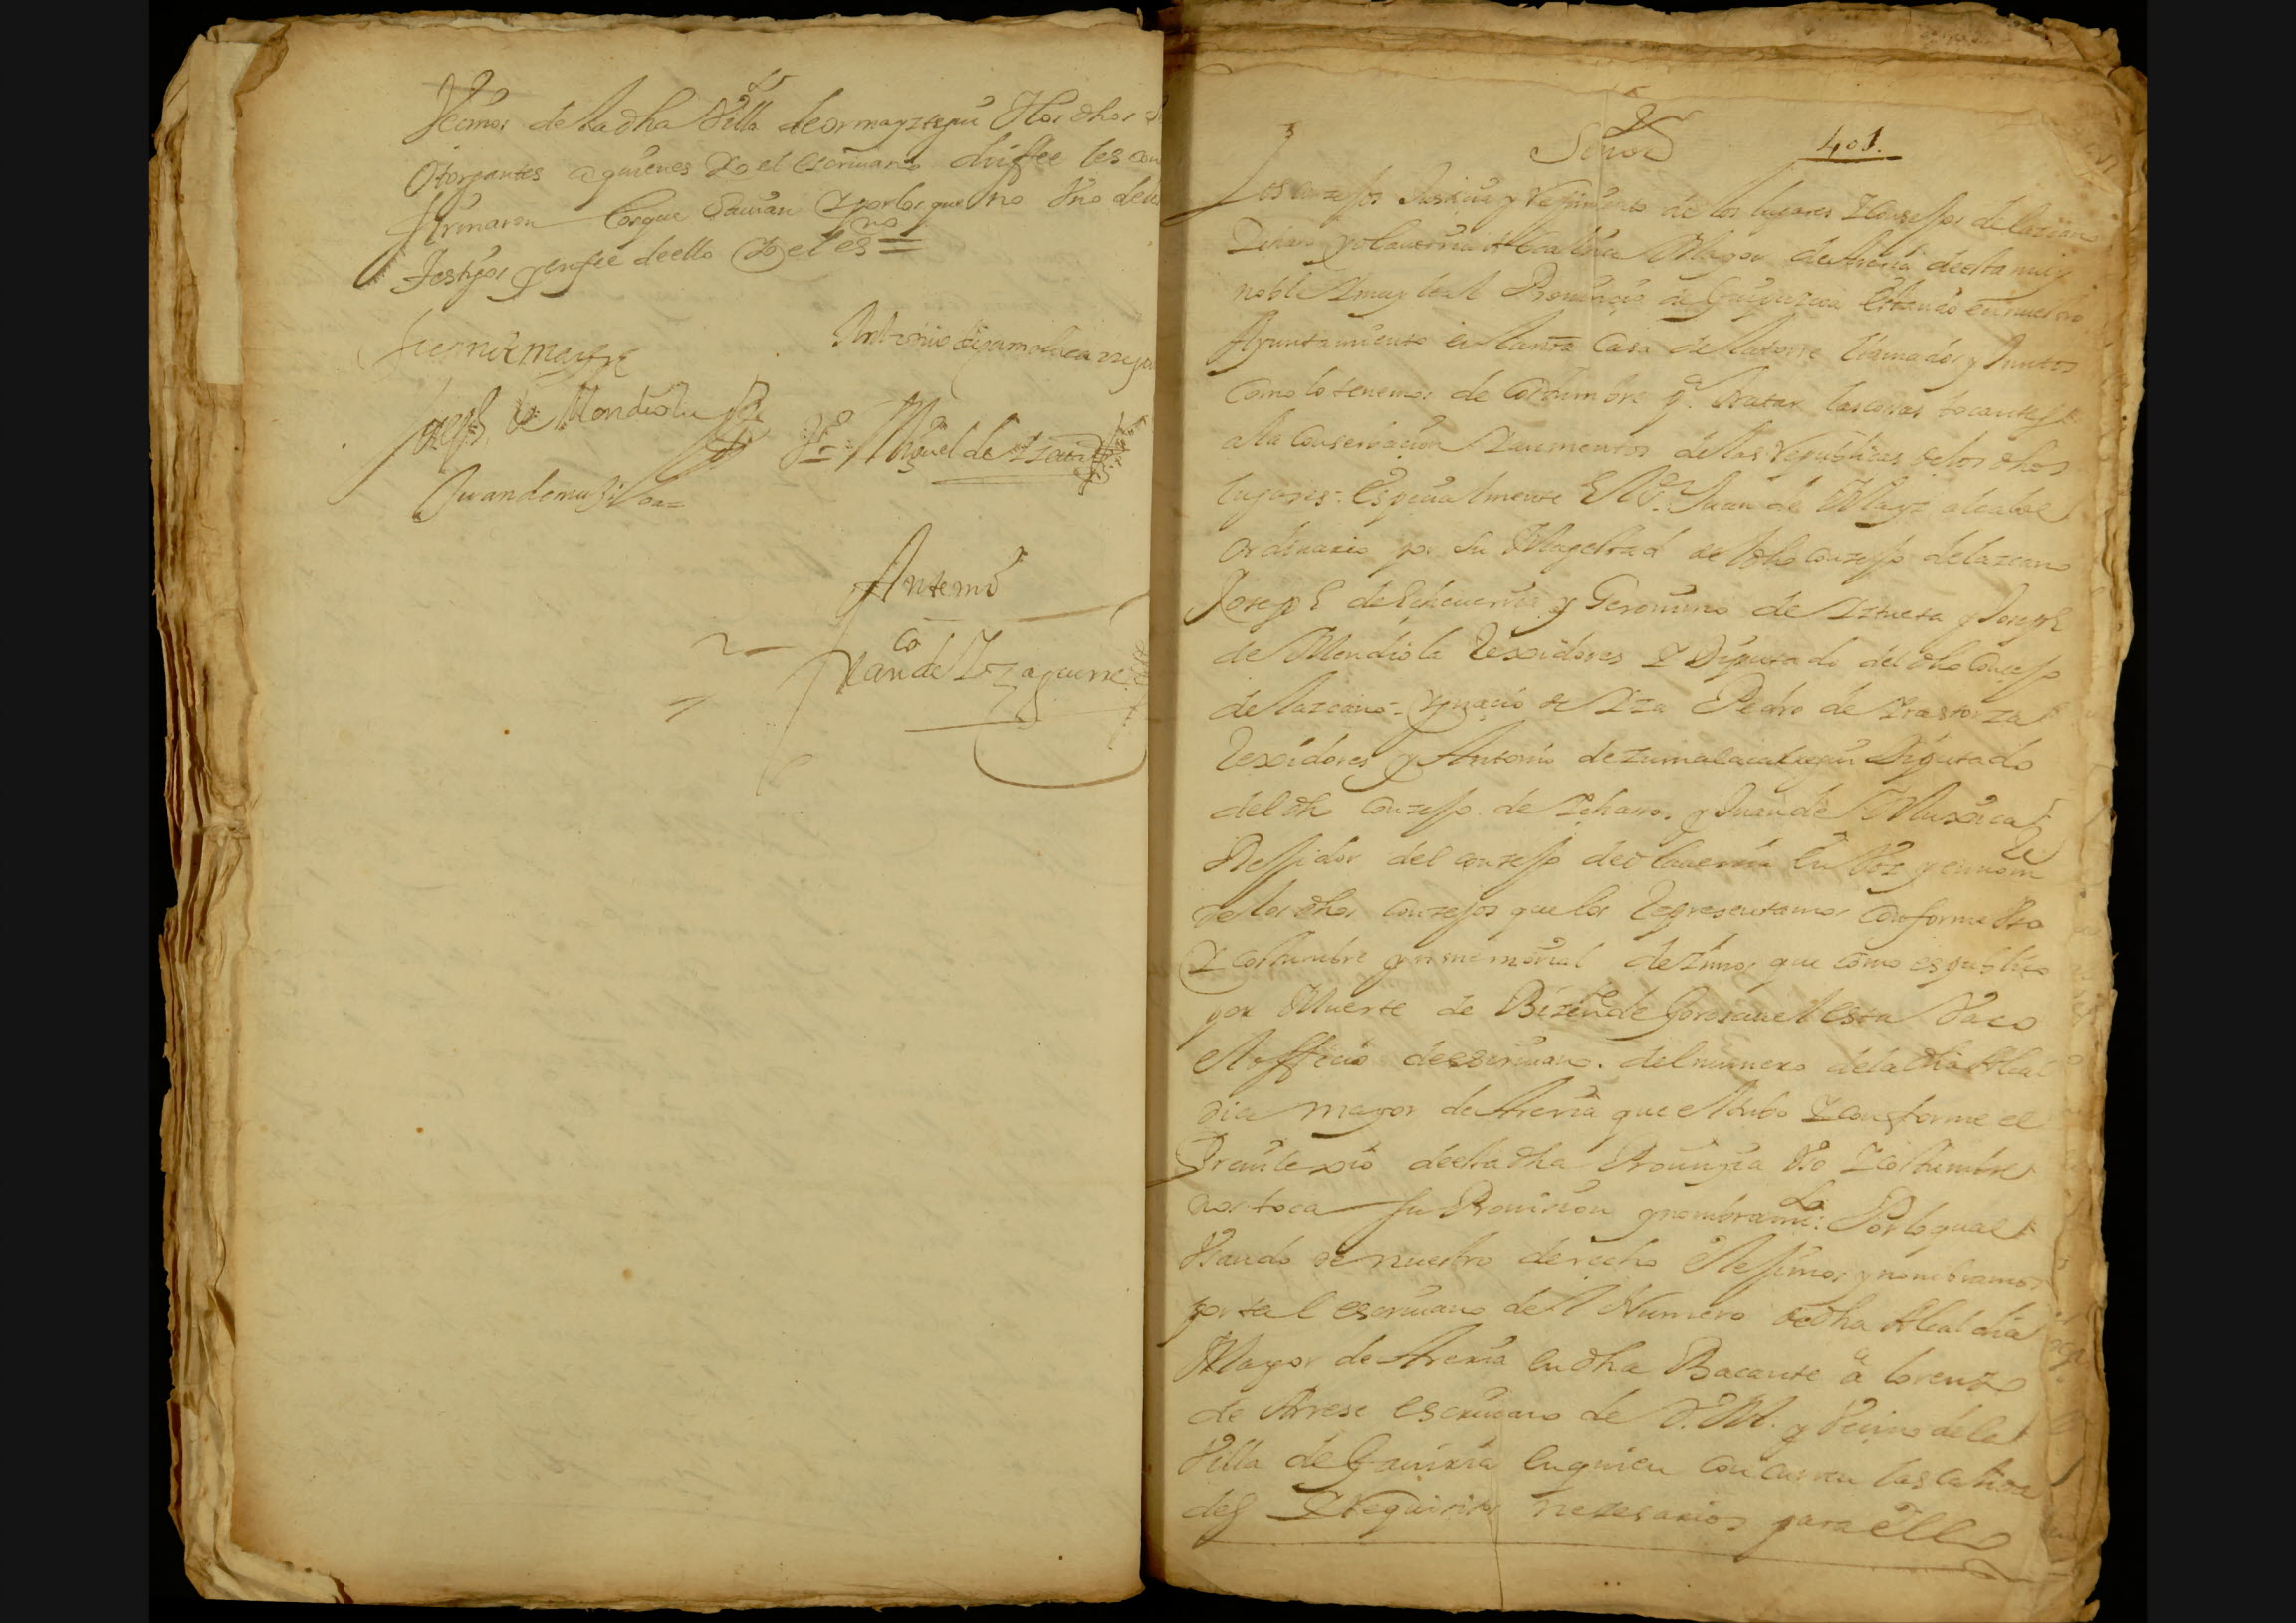 Vecinos de la dha Villa de ormayztegui Y los dhos
Otorgantes a quienes yo el escriuano doi ffee les con
firmaron los que sauian y por los que no Vno de los
testigos y en fee de ello yo el es.no =
Antonio de
Joseph de Mendiola
Miguel de
Juan de mujica =
Ante mi
Fran.co de Yzaguirre
401.
Señor
Los conzejos Justicia y Regimiento de los lugares y Consejos de lazcano
Ychaso y olauerria Alcaldia Mayor de Areria de esta muy
noble y muy leal Prouincia de Guipuzcoa Estando en nuestro
Ayuntamiento en la casa de la torre llamados y Juntos
como lo tenemos de costumbre p.a tratar las cosas tocantes
a la conserbacion y aumentos de las Republicas de los dhos
lugares: Especialmente Juan de alcalde
ordinario por su Magestad de el dho conzejo de lazcano
Joseph de Echeuerria y Geronimo de Yztueta y Joseph
de Mendiola Rexidores y Diputado del dho Consejo
de lazcano - Ygnacio de Yza Pedro de Yrastorza
Rexidores y Antonio de zumalacarregui Diputado
del dho conzejo de Ychasso. y Juan de Muxica
Rejidor del conzejo de olauerria en Voz y en nom.re
de los dhos conzejos que los Representamos conforme Vso
y costumbre ynmemorial dezimos que como es publico
por Muerte de Bizente de Gorosauel esta Vaco
el officio de escriuano. del numero de la dha Alcal
dia mayor de Areria que el tubo y conforme el
Preuilexio de esta dha Prouinçia Vso y costumbre
nos toca su Prouision y nombram.to: Por lo qual
Vsando de nuestro derecho Elejimos y nombramos
por tal escriuano del Numero de dha Alcaldia
Mayor de Areria en dha Bacante a lorenzo
de Arrese escriuano de S.M. y Vecino de la
Villa de Gauiria en quien concurren las calida
des y Requisitos nezesarios para ello